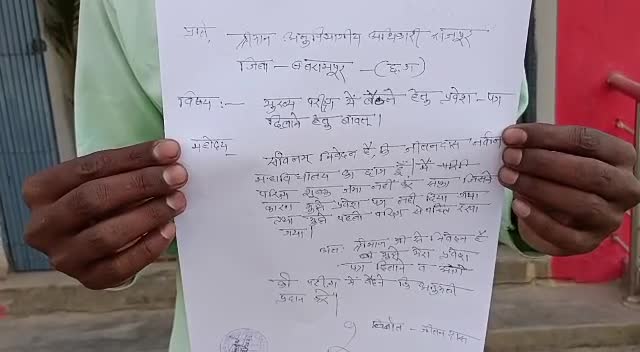 प्रति,
श्रीमान अनुविभागीय अधिकारी राजपुर
जिला - बलरामपुर - (छ.ग)
विषय :- मुख्य परीक्षा में बैठने हेतु प्रवेश - पत्र
दिलाने हेतु बाबत्।
महोदय,
सविनय निवेदन है, कि नवीन
महाविद्यालय का छात्र हूँ। मैं
शुल्क जमा नहीं कर सका जिसके
कारण मुझे प्रवेश पत्र नहीं दिया गया
तथा मुझे पहली से वंचित रखा
गया।
अतः श्रीमान जी से निवेदन है
की मुझे मेरा प्रवेश
पत्र दिलाने व आगे
की परीक्षा में बैठने कि अनुमति
प्रदान करें।